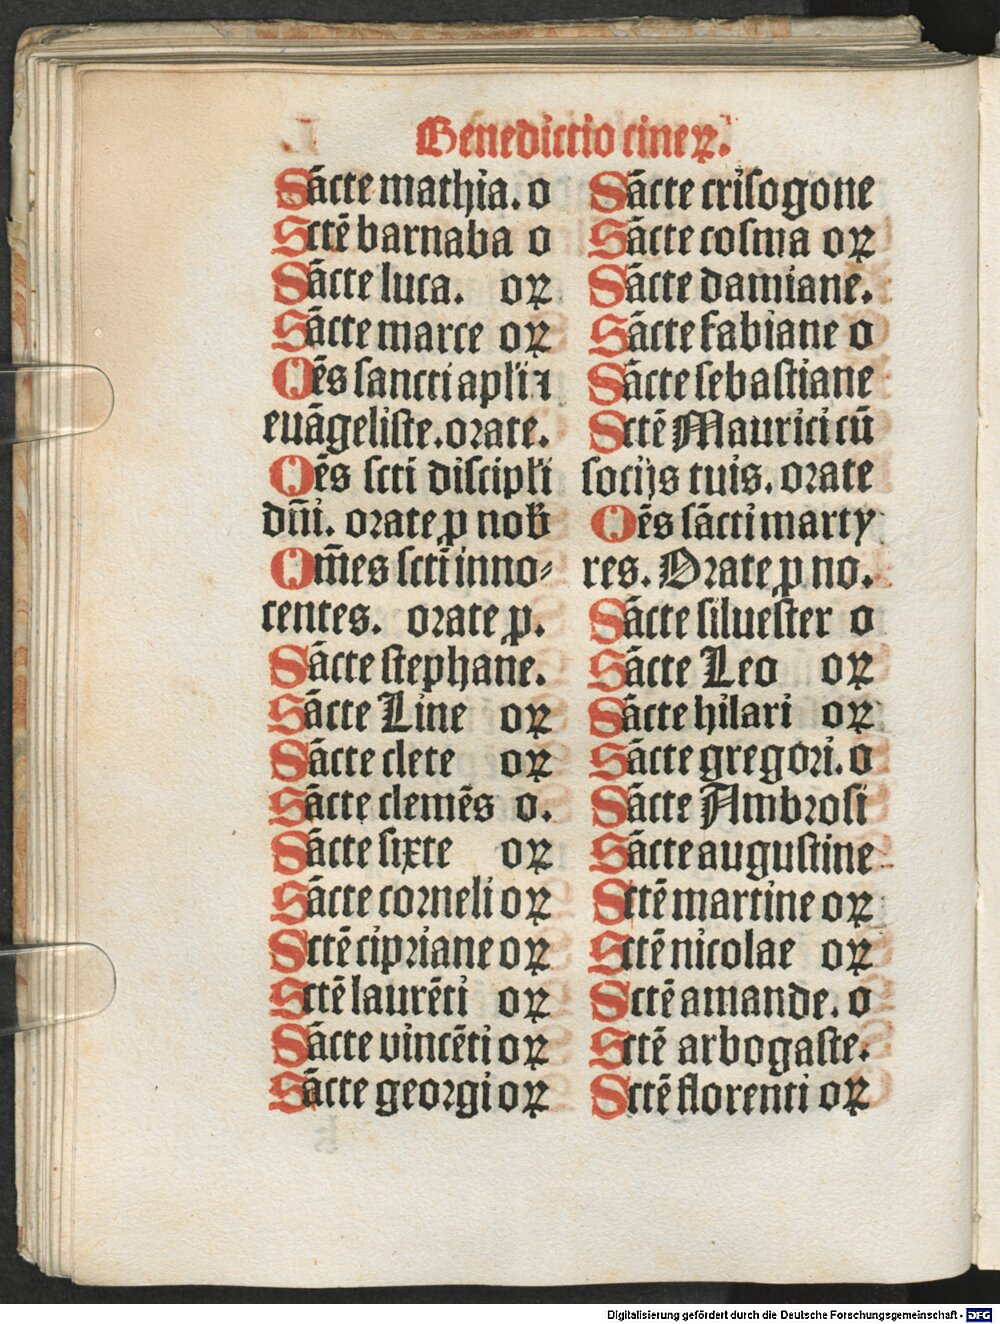 Benedictio cineꝝ.
Sācte mathia. o
Sctē barnaba o
Sācte luca. oꝝ
Sācte marce oꝝ
Oēs sancti apłi ⁊
euāgeliste. orate.
Oēs scti discipłi
dn̄i. orate ꝓ nob̄
Om̄es sctī inno⸗
centes. orate ꝓ.
Sācte stephane.
Sācte Line oꝝ
Sācte clete oꝝ
Sācte clemēs o.
Sācte sixte oꝝ
Sācte corneli oꝝ
Sctē cipriane oꝝ
Sctē laurēti oꝝ
Sācte vincēti oꝝ
Sācte georgi oꝝ
Sācte crisogone
Sācte cosma oꝝ
Sācte damiane.
Sācte fabiane o
Sācte sebastiane
Sctē Maurici cū
socijs tuis. orate
Oēs sācti marty
res. Orate ꝓ no.
Sācte siluester o
Sācte Leo oꝝ
Sācte hilari oꝝ
Sācte gregori. o
Sācte Ambrosi
Sācte augustine
Sctē martine oꝝ
Sctē nicolae oꝝ
Sctē amande. o
Sctē arbogaste.
Sctē florenti oꝝ
Digitalisierung gefördert durch die Deutsche Forschungsgemeinschaft - DFG